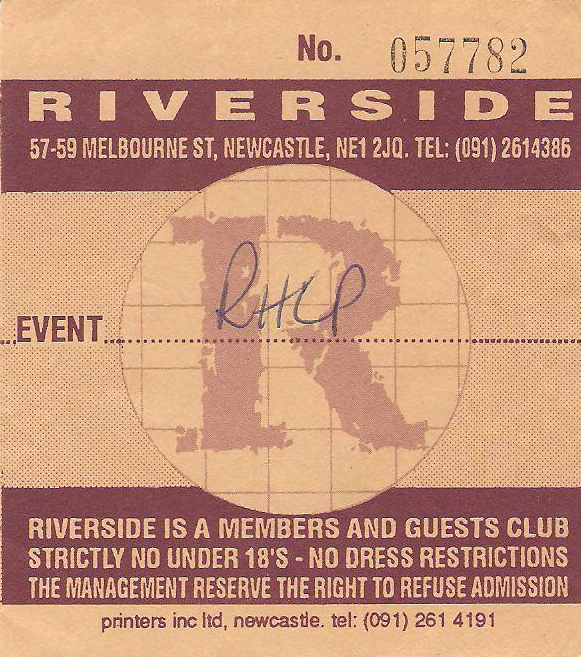 No. 057782
RIVERSIDE
57-59 MELBOURNE ST, NEWCASTLE, NE1 2JQ. TEL: (091) 2614386
R
RHCP
EVENT
RIVERSIDE IS A MEMBERS AND GUESTS CLUB
STRICTLY NO UNDER 18'S - NO DRESS RESTRICTIONS
THE MANAGEMENT RESERVE THE RIGHT TO REFUSE ADMISSION
printers inc ltd, newcastle. tel: (091) 261 4191